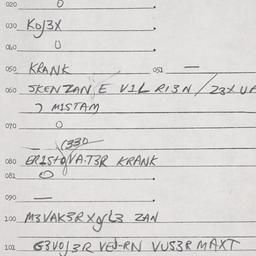 020 0
030 KOJ3X
040 0
050 KRANK 051 —
060 SKENZAN E V1L R13N / Z3X UF
) M1STAM
070 0
080 ER1STOJVAT3R KRANK
081 0
090 —
100 M3VAK3R XOL3 ZAN
101 G3VOJ3R VEJ-RN VUS3R MAXT